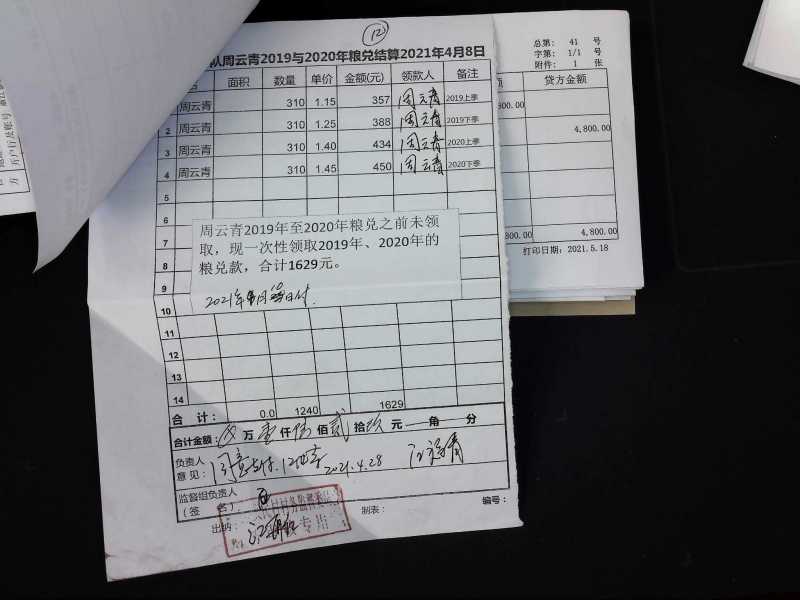 12
队周云青2019与2020年粮兑结算2021年4月8日
面积 数量 单价 金额(元) 领款人 备注
周云青 310 1.15 357 周云青 2019上季
2 周云青 310 1.25 388 周云青 2019下季
3 周云青 310 1.40 434 周云青 2020上季
4 周云青 310 1.45 450 周云青 2020下季
5
6
7
8
9
10
11
12
13
14
周云青2019年至2020年粮兑之前未领
取，现一次性领取2019年、2020年的
粮兑款，合计1629元。
合 计： 0.0 1240 1629
合计金额： 万 壹 仟 陆 佰 贰 拾 玖 元 角 分
负责人
意 见： 同意支付 2021.4.28
监督组负责人
(签 名)
出纳：
专用
制表：
编号：
总第： 41 号
字第： 1/1 号
附件： 1 张
贷方金额
800.00
4,800.00
800.00 4,800.00
打印日期：2021.5.18